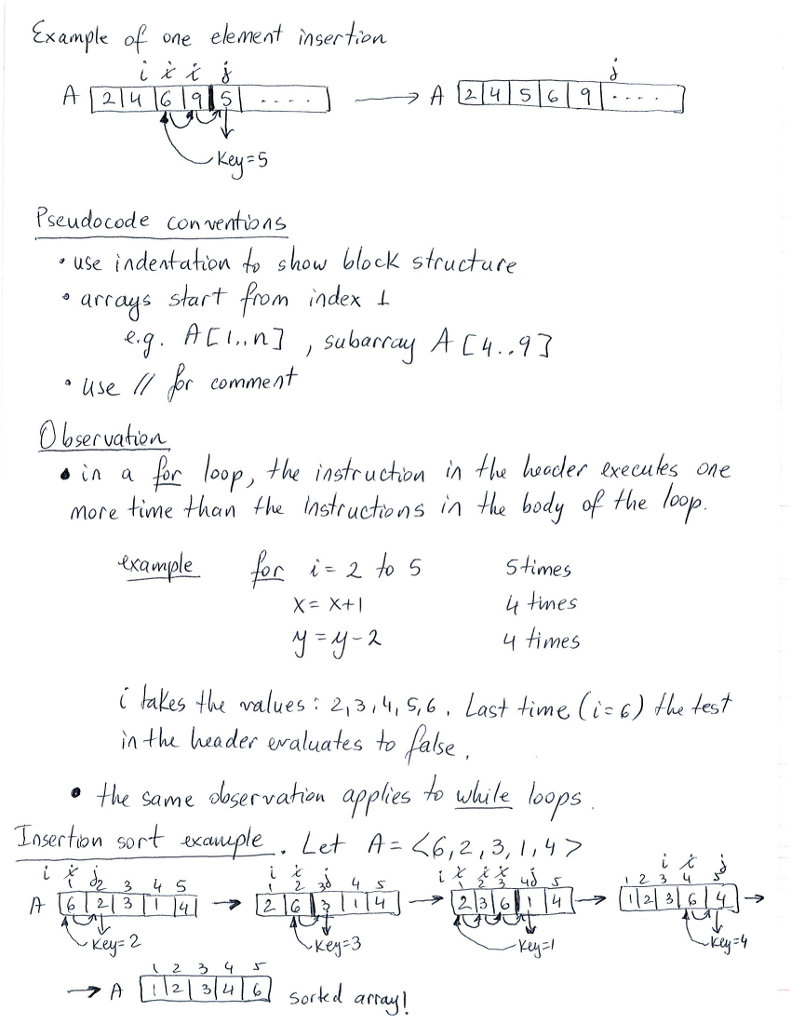 Example of one element insertion
i i i j j
A 2 4 6 9 5 .... → A 2 4 5 6 9 ....
Key=5
Pseudocode conventions
• use indentation to show block structure
• arrays start from index 1
e.g. A[1..n] , subarray A[4..9]
• use // for comment
Observation
• in a for loop, the instruction in the header executes one
more time than the instructions in the body of the loop.
example for i= 2 to 5 5 times
x= x+1 4 times
y=y-2 4 times
i takes the values: 2,3,4,5,6. Last time (i=6) the test
in the header evaluates to false.
• the same observation applies to while loops.
Insertion sort example. Let A= <6,2,3,1,4>
i i j i i j i i i i j i i j
1 2 3 4 5 1 2 3 4 5 1 2 3 4 5 1 2 3 4 5
A 6 2 3 1 4 → 2 6 3 1 4 → 2 3 6 1 4 → 1 2 3 6 4 →
Key=2 Key=3 Key=1 Key=4
1 2 3 4 5
→ A 1 2 3 4 6 sorted array!